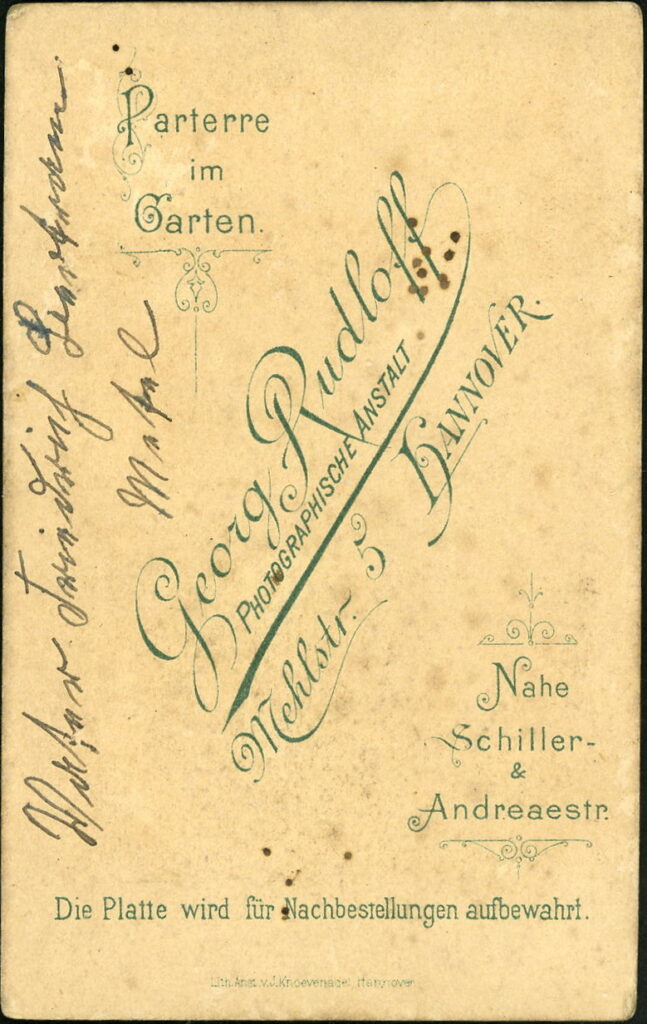 Parterre
im
Garten.
Georg Rudloff
PHOTOGRAPHISCHE ANSTALT
Mehlstr. 5 HANNOVER.
Nahe
Schiller-
&
Andreaestr.
Die Platte wird für Nachbestellungen aufbewahrt.
Lith. Anst. v. J. Knoevenagel, Hannover
Friedrich